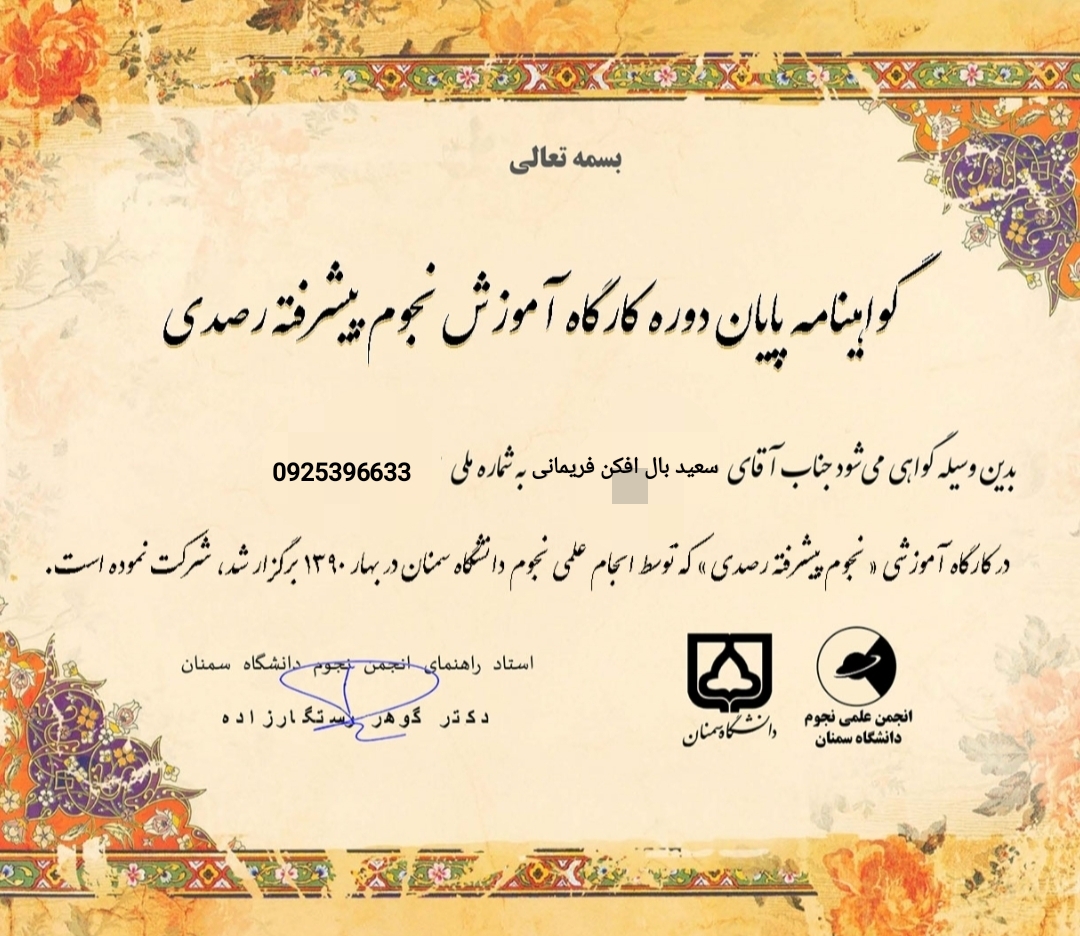 بسمه تعالی
گواهینامه پایان دوره کارگاه آموزش نجوم پیشرفته رصدی
بدین وسیله گواهی می‌شود جناب آقای سعید بال افکن فریمانی به شماره ملی 0925396633
در کارگاه آموزشی « نجوم پیشرفته رصدی » که توسط انجام علمی نجوم دانشگاه سمنان در بهار ۱۳۹۰ برگزار شد، شرکت نموده است.
استاد راهنمای انجمن نجوم دانشگاه سمنان
دکتر گوهر رستگارزاده
انجمن علمی نجوم
دانشگاه سمنان
دانشگاه سمنان